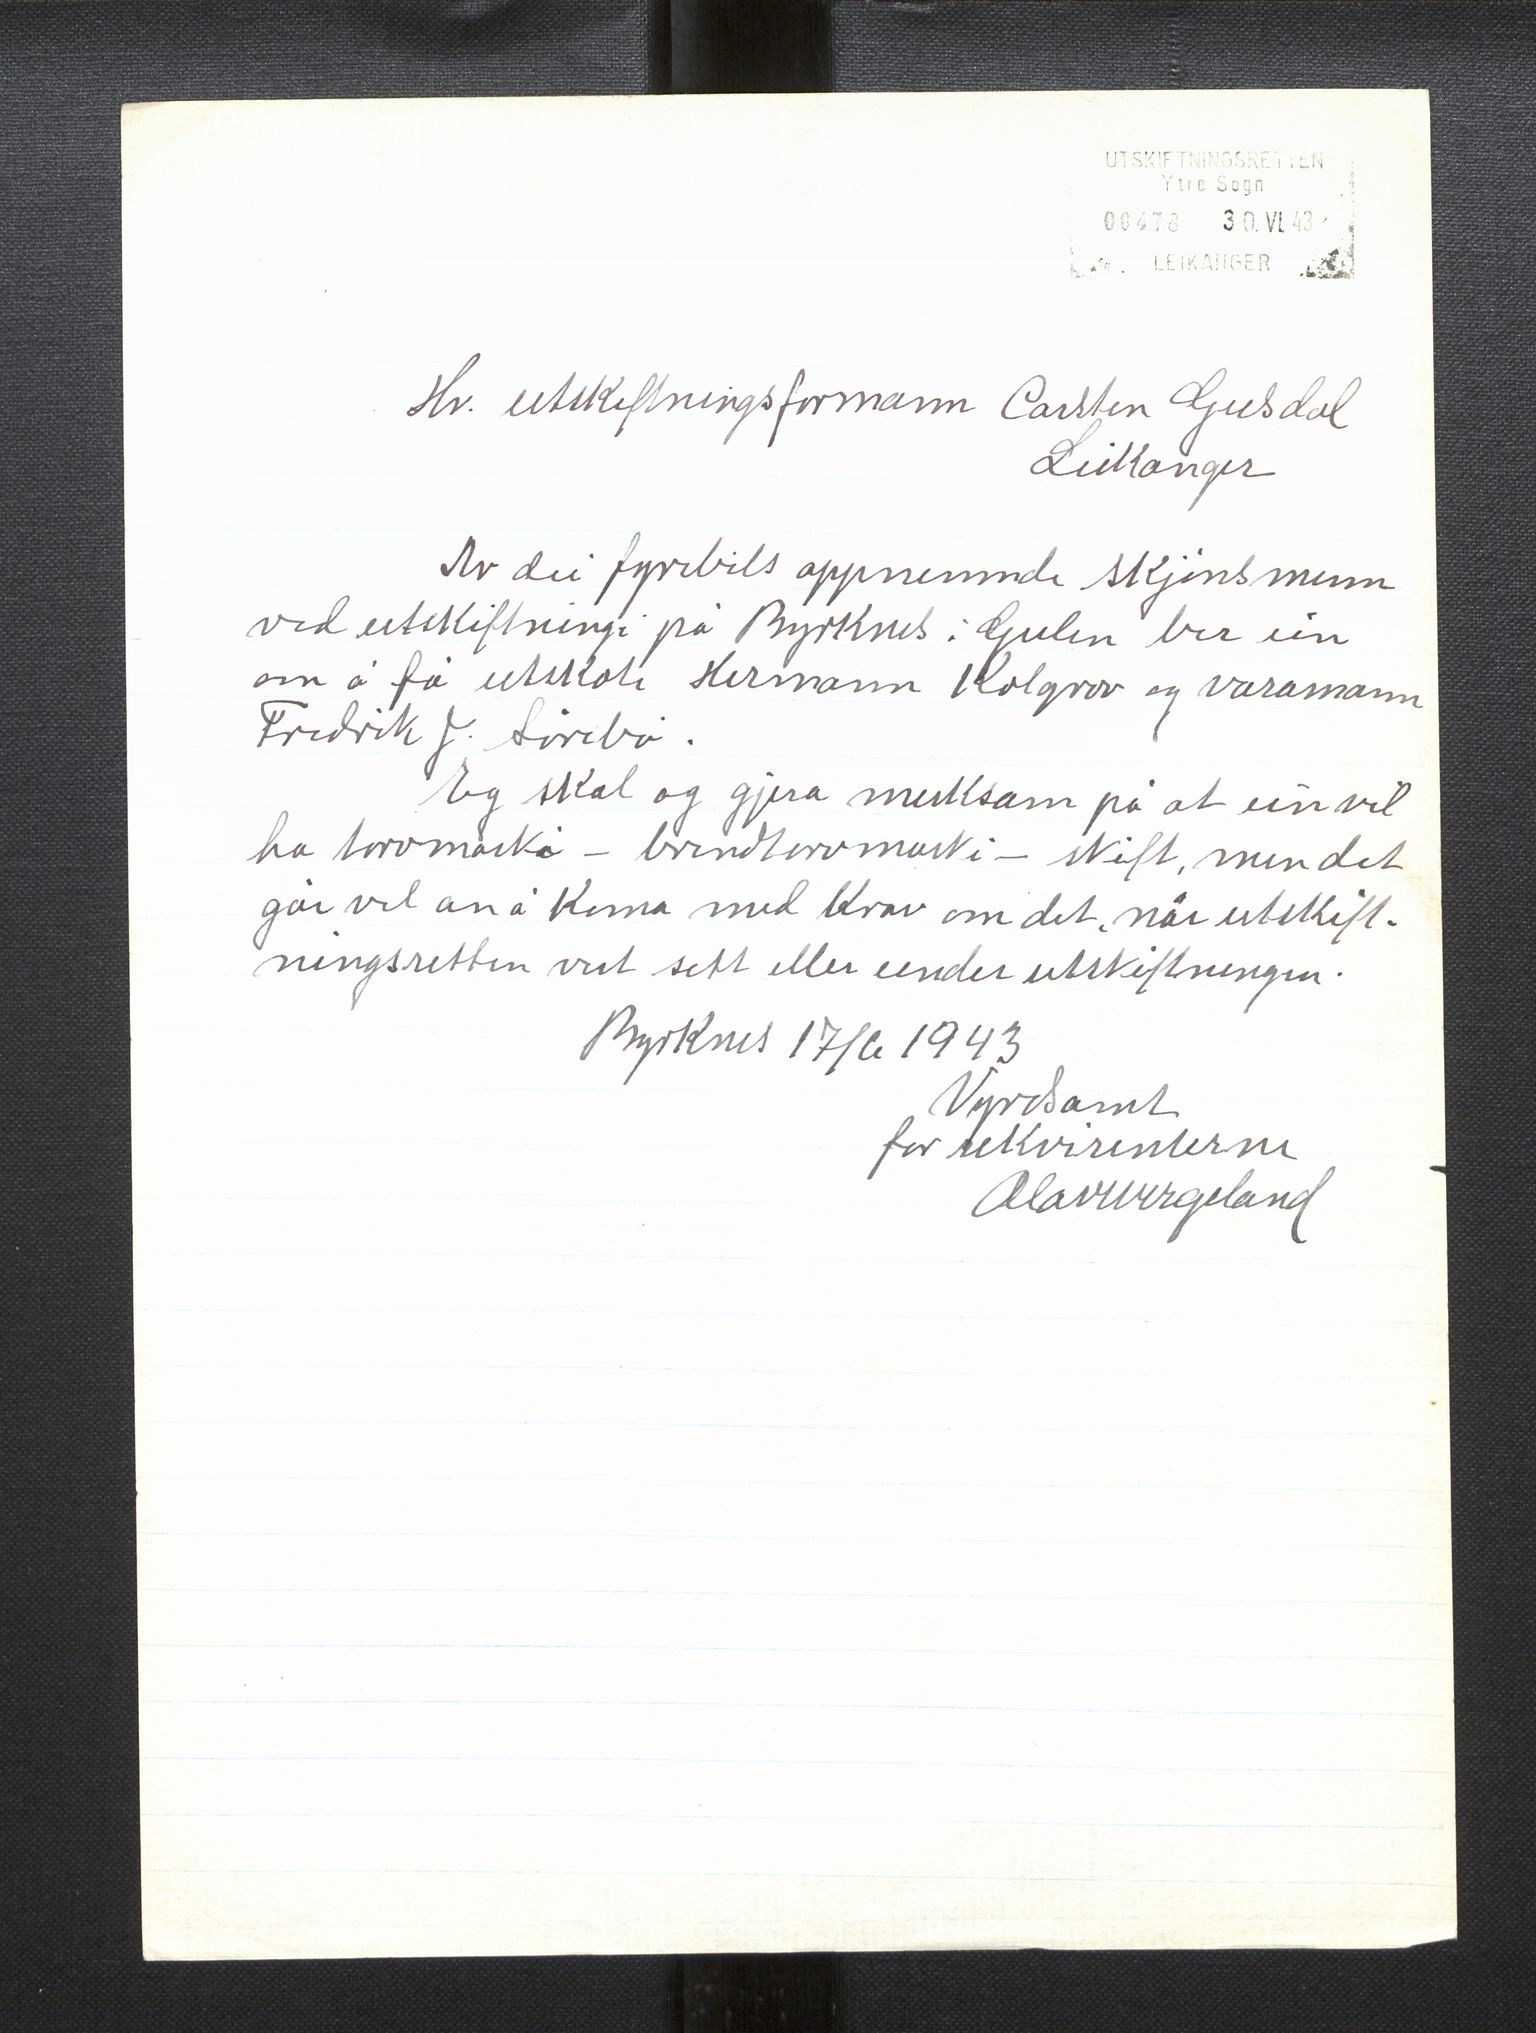 UTSKIFTNINGSRETTEN
Ytre Sogn
00478 30.VI.43
LEIKANGER
Hr. utskiftningsformann Carsten Gjesdal
Leikanger
Av dei fyrebils oppnemnde skjønsmenn
ved utskiftningi på Byrknes i Gulen ber ein
om å få utskote Hermann Kolgrov og varamann
Fredrik J. Sörebö.
Eg skal og gjera merksam på at ein vil
ha torvmarki – brendtorvmarki – skift, men det
går vel an å koma med krav om det, når utskift-
ningsretten vert sett eller under utskiftningen.
Byrknes 17/6 1943
Vyrdsamt
for rekvirenterne
Olav Wergeland